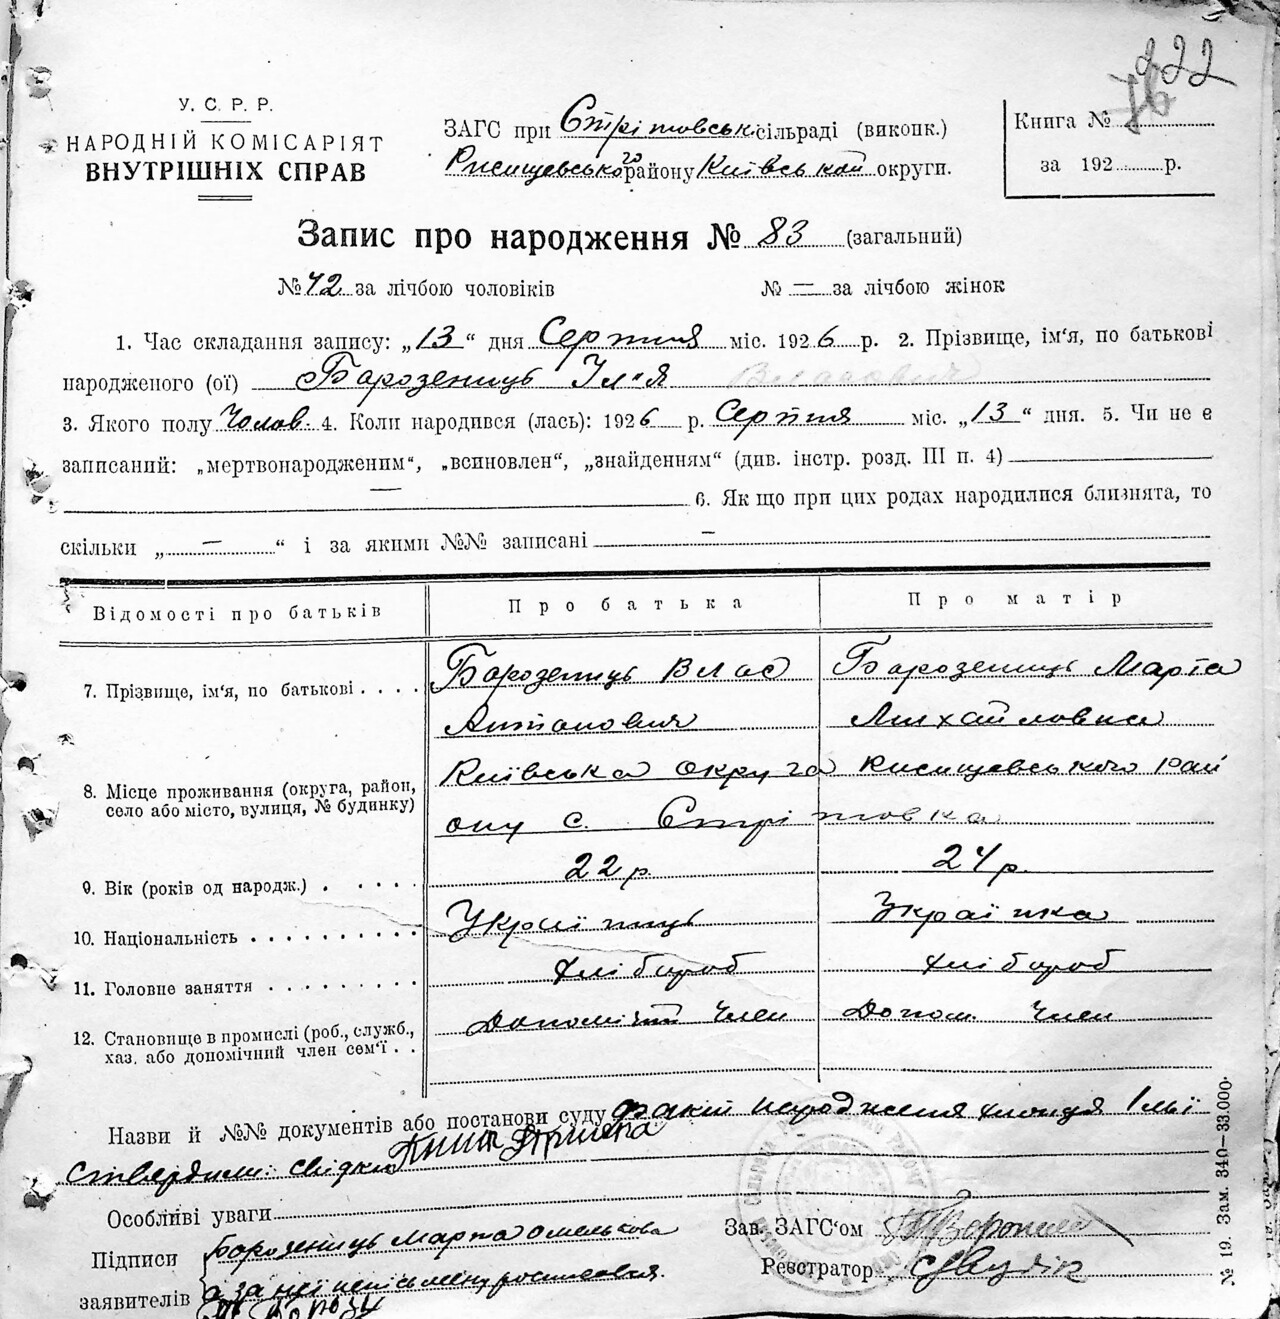 222
76
У. С. Р. Р.
НАРОДНІЙ КОМІСАРІЯТ
ВНУТРІШНІХ СПРАВ
ЗАГС при Стрітовськ. сільраді (викопк.)
Рисищевського району Київській округи.
Книга №
за 192 р.
Запис про народження № 83 (загальний)
№ 42 за лічбою чоловіків № — за лічбою жінок
1. Час складання запису: „13“ дня Серпня міс. 1926 р. 2. Прізвище, ім‘я, по батькові
народженого (ої) Барозениць Ілля Власович
3. Якого полу Чолов. 4. Коли народився (лась): 1926 р. Серпня міс. „13“ дня. 5. Чи не є
записаний: „мертвонародженим“, „всиновлен“, „знайденням“ (див. інстр. розд. III п. 4)
— 6. Як що при цих родах народилися близнята, то
скільки „ — “ і за якими №№ записані —
Відомості про батьків Про батька Про матір
7. Прізвище, ім‘я, по батькові Барозениць Влас Барозениць Марта
Антанович Михайловна
8. Місце проживання (округа, район, село або місто, вулиця, № будинку) Київська округа Рисищевського рай
ону с. Стрітовка
9. Вік (років од народж.) 22 р. 24 р.
10. Національність Українць Українка
11. Головне заняття хлібароб хлібароб
12. Становище в промислі (роб., служб., хаз. або допомічний член сем‘ї Допомічний Член Допом. Член
Назви й №№ документів або постанови суду факт народження хлопця Ільї
ствердили: свідки
Особливі уваги
Підписи Барозениць Марта Омелькова
заявителів а за неї неписьменну росписався.
Зав. ЗАГС‘ом
Реєстратор
№ 19. Зам. 340—33.000.